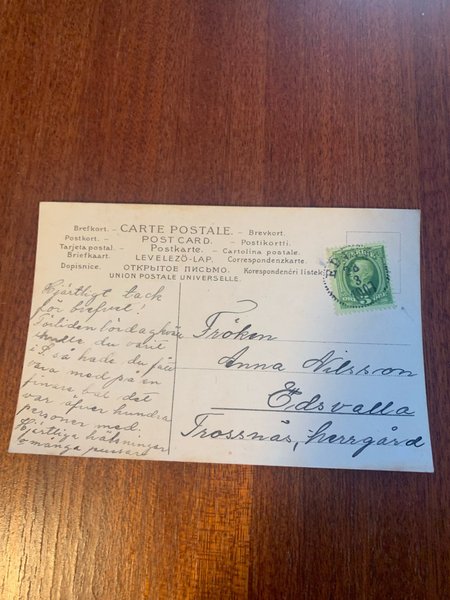 Brefkort. – CARTE POSTALE. – Brevkort.
Postkort. – POST CARD. – Postikortti.
Tarjeta postal. – Postkarte. – Cartolina postale.
Briefkaart. LEVELEZŐ-LAP. Correspondenzkarte.
Dopisnice. ОТКРЫТОЕ ПИСЬМО. Korespondenčni listek.
UNION POSTALE UNIVERSELLE.
Hjärtligt tack
för brefvet!
Förliden lördagkväll
du varit
i så hade du fått
vara med på en
finare bal det
var äfver hundra
personer med.
Hjertliga hälsningar
o många pussar
Fröken
Anna Nilsson
Edsvalla
Trossnäs, herrgård
5